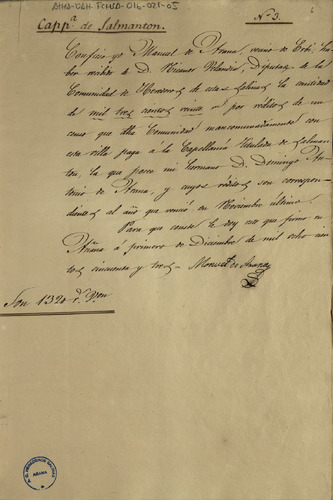 ATHA-DAH-FCMSA-016-021-05
Capp.ª de Salmanton.
N.º 3.
Confieso yo Manuel de Arana, vecino de Orbi, ha-
ber recibido de D. Nicanor Diputado de la
Comunidad de Herederos de estas Salinas la cantidad
de mil tres cientos veinte rs por réditos de un
censo que dha Comunidad mancomunadamente con
esta villa paga á la Capellanía titulada de Salman-
ton, la que posee mi hermano D. Domingo An-
tonio de Arana, y cuyos réditos son correspon-
dientes al año que venció en Noviembre último.
Para que conste le doy este que firmo en
Añana á primero de Diciembre de mil ocho cien-
tos cincuenta y tres = Manuel de Arana
Son 1320 rs. von
AÑANA